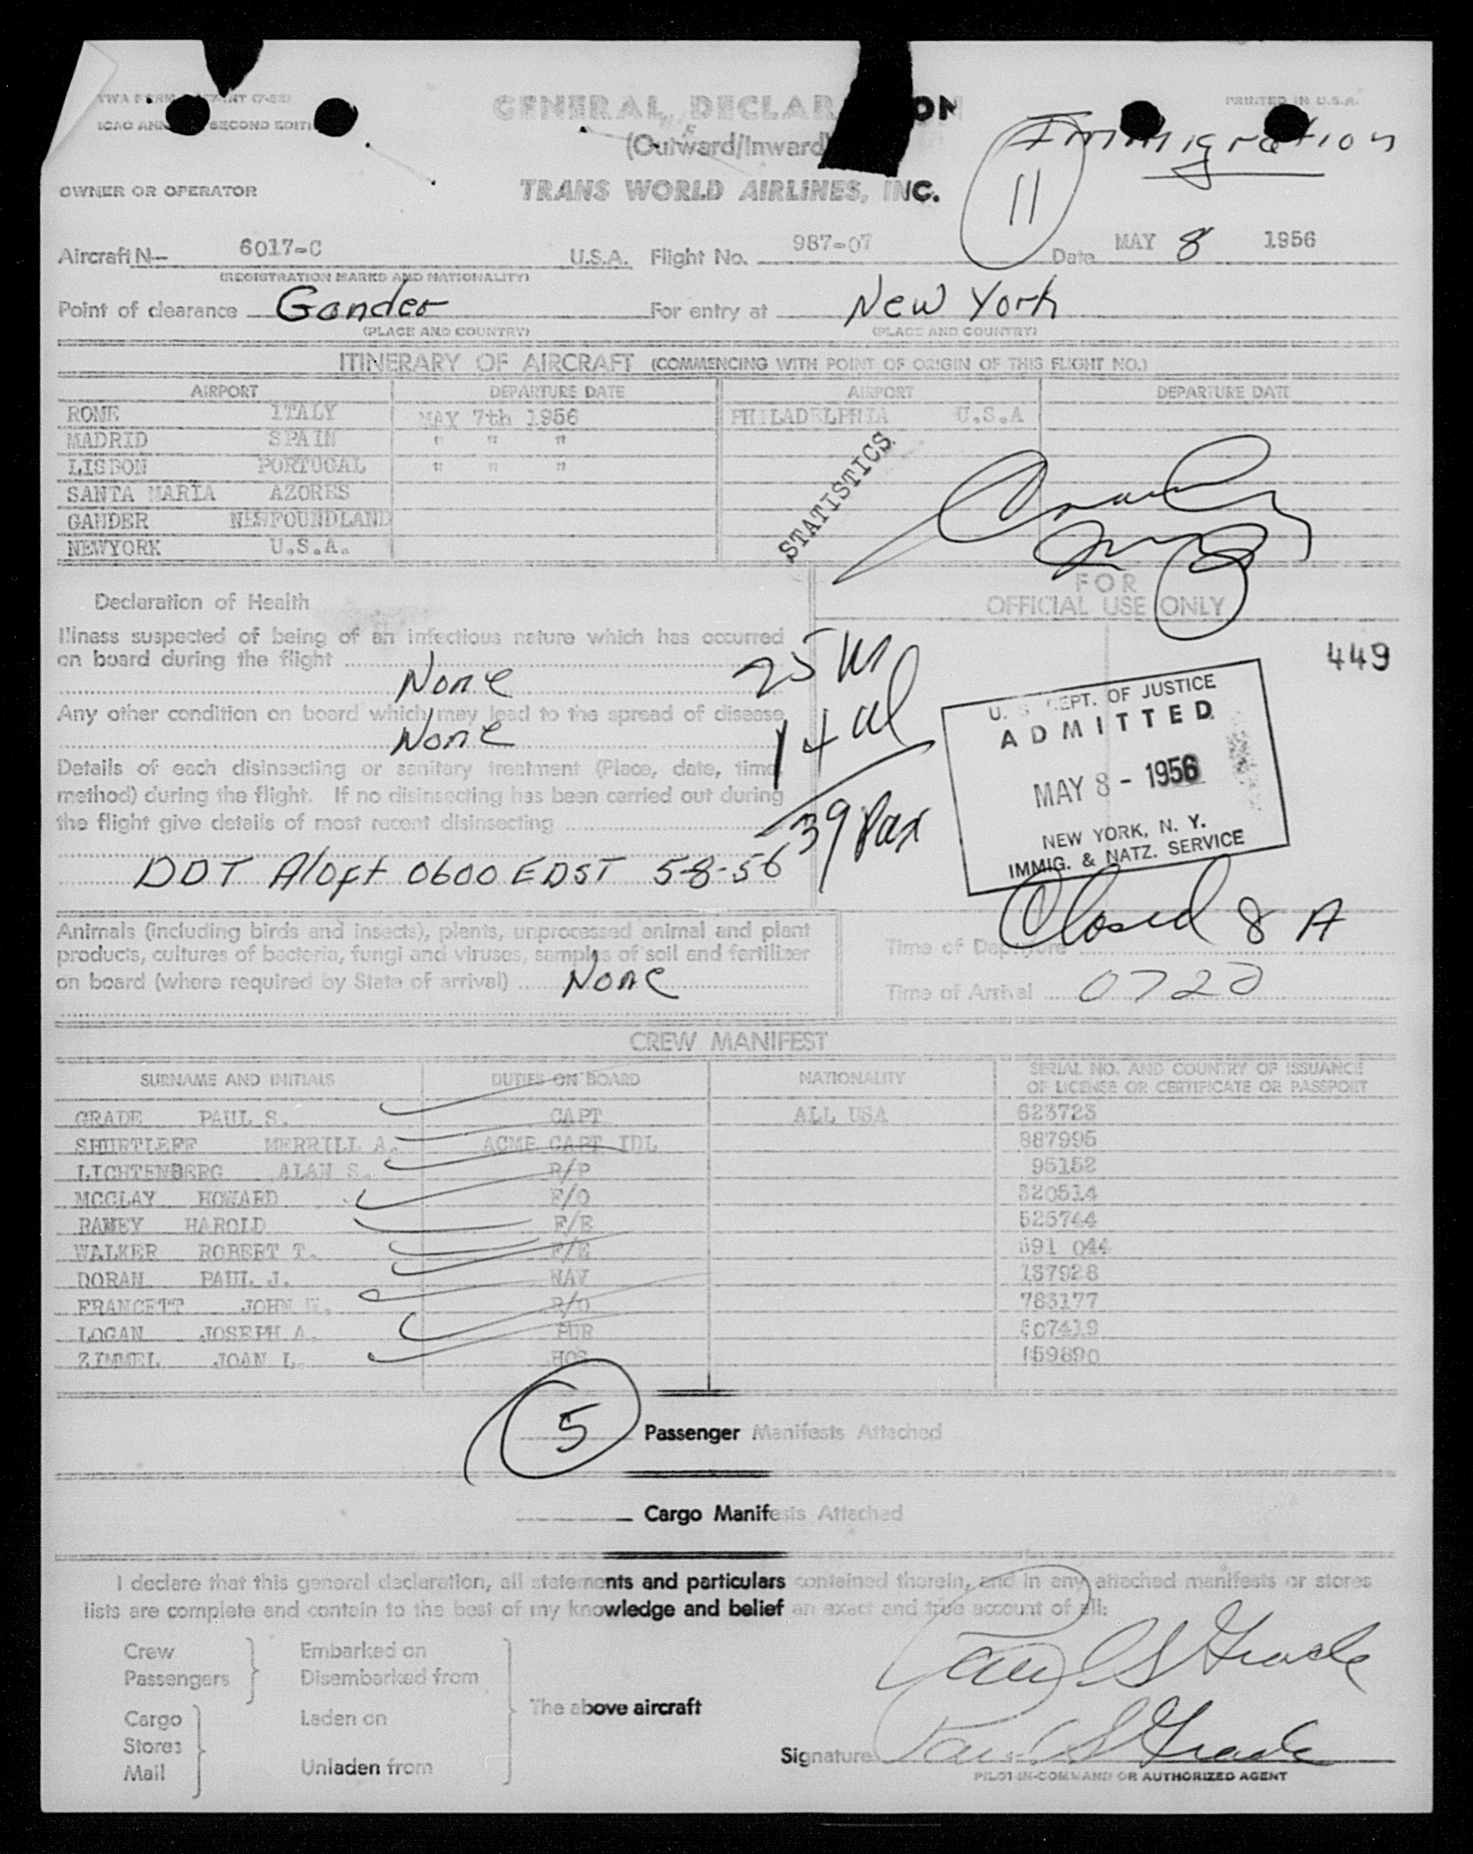 GENERAL DECLARATION
PRINTED IN U.S.A.
SECOND EDIT
(Outward/Inward)
Immigration
11
OWNER OR OPERATOR
TRANS WORLD AIRLINES, INC.
Aircraft N- 6017-C U.S.A. Flight No. 987-07 Date MAY 8 1956
(REGISTRATION MARKS AND NATIONALITY)
Point of clearance Gander For entry at New York
(PLACE AND COUNTRY) (PLACE AND COUNTRY)
ITINERARY OF AIRCRAFT (COMMENCING WITH POINT OF ORIGIN OF THIS FLIGHT NO.)
AIRPORT DEPARTURE DATE AIRPORT DEPARTURE DATE
ROME ITALY MAY 7th 1956 PHILADELPHIA U.S.A
MADRID SPAIN " " "
LISBON PORTUGAL " " "
SANTA MARIA AZORES
GANDER NEWFOUNDLAND
NEWYORK U.S.A.
STATISTICS
FOR
OFFICIAL USE ONLY
Declaration of Health
Illness suspected of being of an infectious nature which has occurred
on board during the flight
None
Any other condition on board which may lead to the spread of disease
None
Details of each disinsecting or sanitary treatment (Place, date, time,
method) during the flight. If no disinsecting has been carried out during
the flight give details of most recent disinsecting
DDT Aloft 0600 EDST 5-8-56
25 us
14 al
39 Pax
449
U. S. DEPT. OF JUSTICE
ADMITTED
MAY 8 - 1956
NEW YORK, N. Y.
IMMIG. & NATZ. SERVICE
Closed 8 A
Animals (including birds and insects), plants, unprocessed animal and plant
products, cultures of bacteria, fungi and viruses, samples of soil and fertilizer
on board (where required by State of arrival) None
Time of Departure
Time of Arrival 0720
CREW MANIFEST
SURNAME AND INITIALS DUTIES ON BOARD NATIONALITY SERIAL NO. AND COUNTRY OF ISSUANCE
OF LICENSE OR CERTIFICATE OR PASSPORT
GRADE PAUL S. CAPT ALL USA 623723
SHURTLEFF MERRILL A. ACME CAPT IDL 387995
LICHTENBERG ALAN S. R/P 95152
MCCLAY HOWARD F/O 320514
RAMEY HAROLD F/E 525744
WALKER ROBERT T. F/E 591 044
DORAN PAUL J. NAV 137928
FRANCETT JOHN R/O 763177
LOGAN JOSEPH A. PUR 507419
ZIMMEL JOAN L. HOS 159890
5 Passenger Manifests Attached
Cargo Manifests Attached
I declare that this general declaration, all statements and particulars contained therein, and in any attached manifests or stores
lists are complete and contain to the best of my knowledge and belief an exact and true account of all:
Crew Embarked on
Passengers Disembarked from
The above aircraft
Cargo Laden on
Stores
Mail Unladen from
Paul S Grade
Signature Paul S Grade
PILOT-IN-COMMAND OR AUTHORIZED AGENT